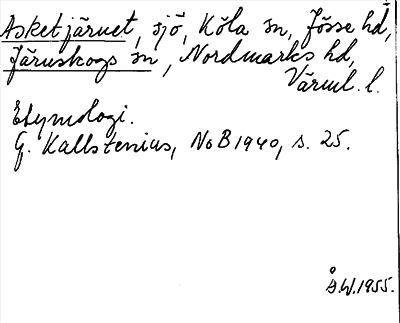 Asketjärnet, sjö, Köla sn, Jösse hd,
Järnskogs sn, Nordmarks hd,
Värml. l.
Etymologi.
G. Kallstenius, NoB 1940, s. 25.
Å.W. 1955.